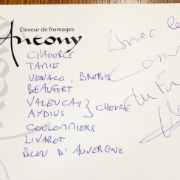 Éleveur de fromages
Antony
CHAOURCE
TAMIE
VENACO, BREBIS
BEAUFORT
VALENCAY } CHEVRE
AYDIUS
COULOMMIERS
LIVAROT
BLEU D'AUVERGNE
Avec les